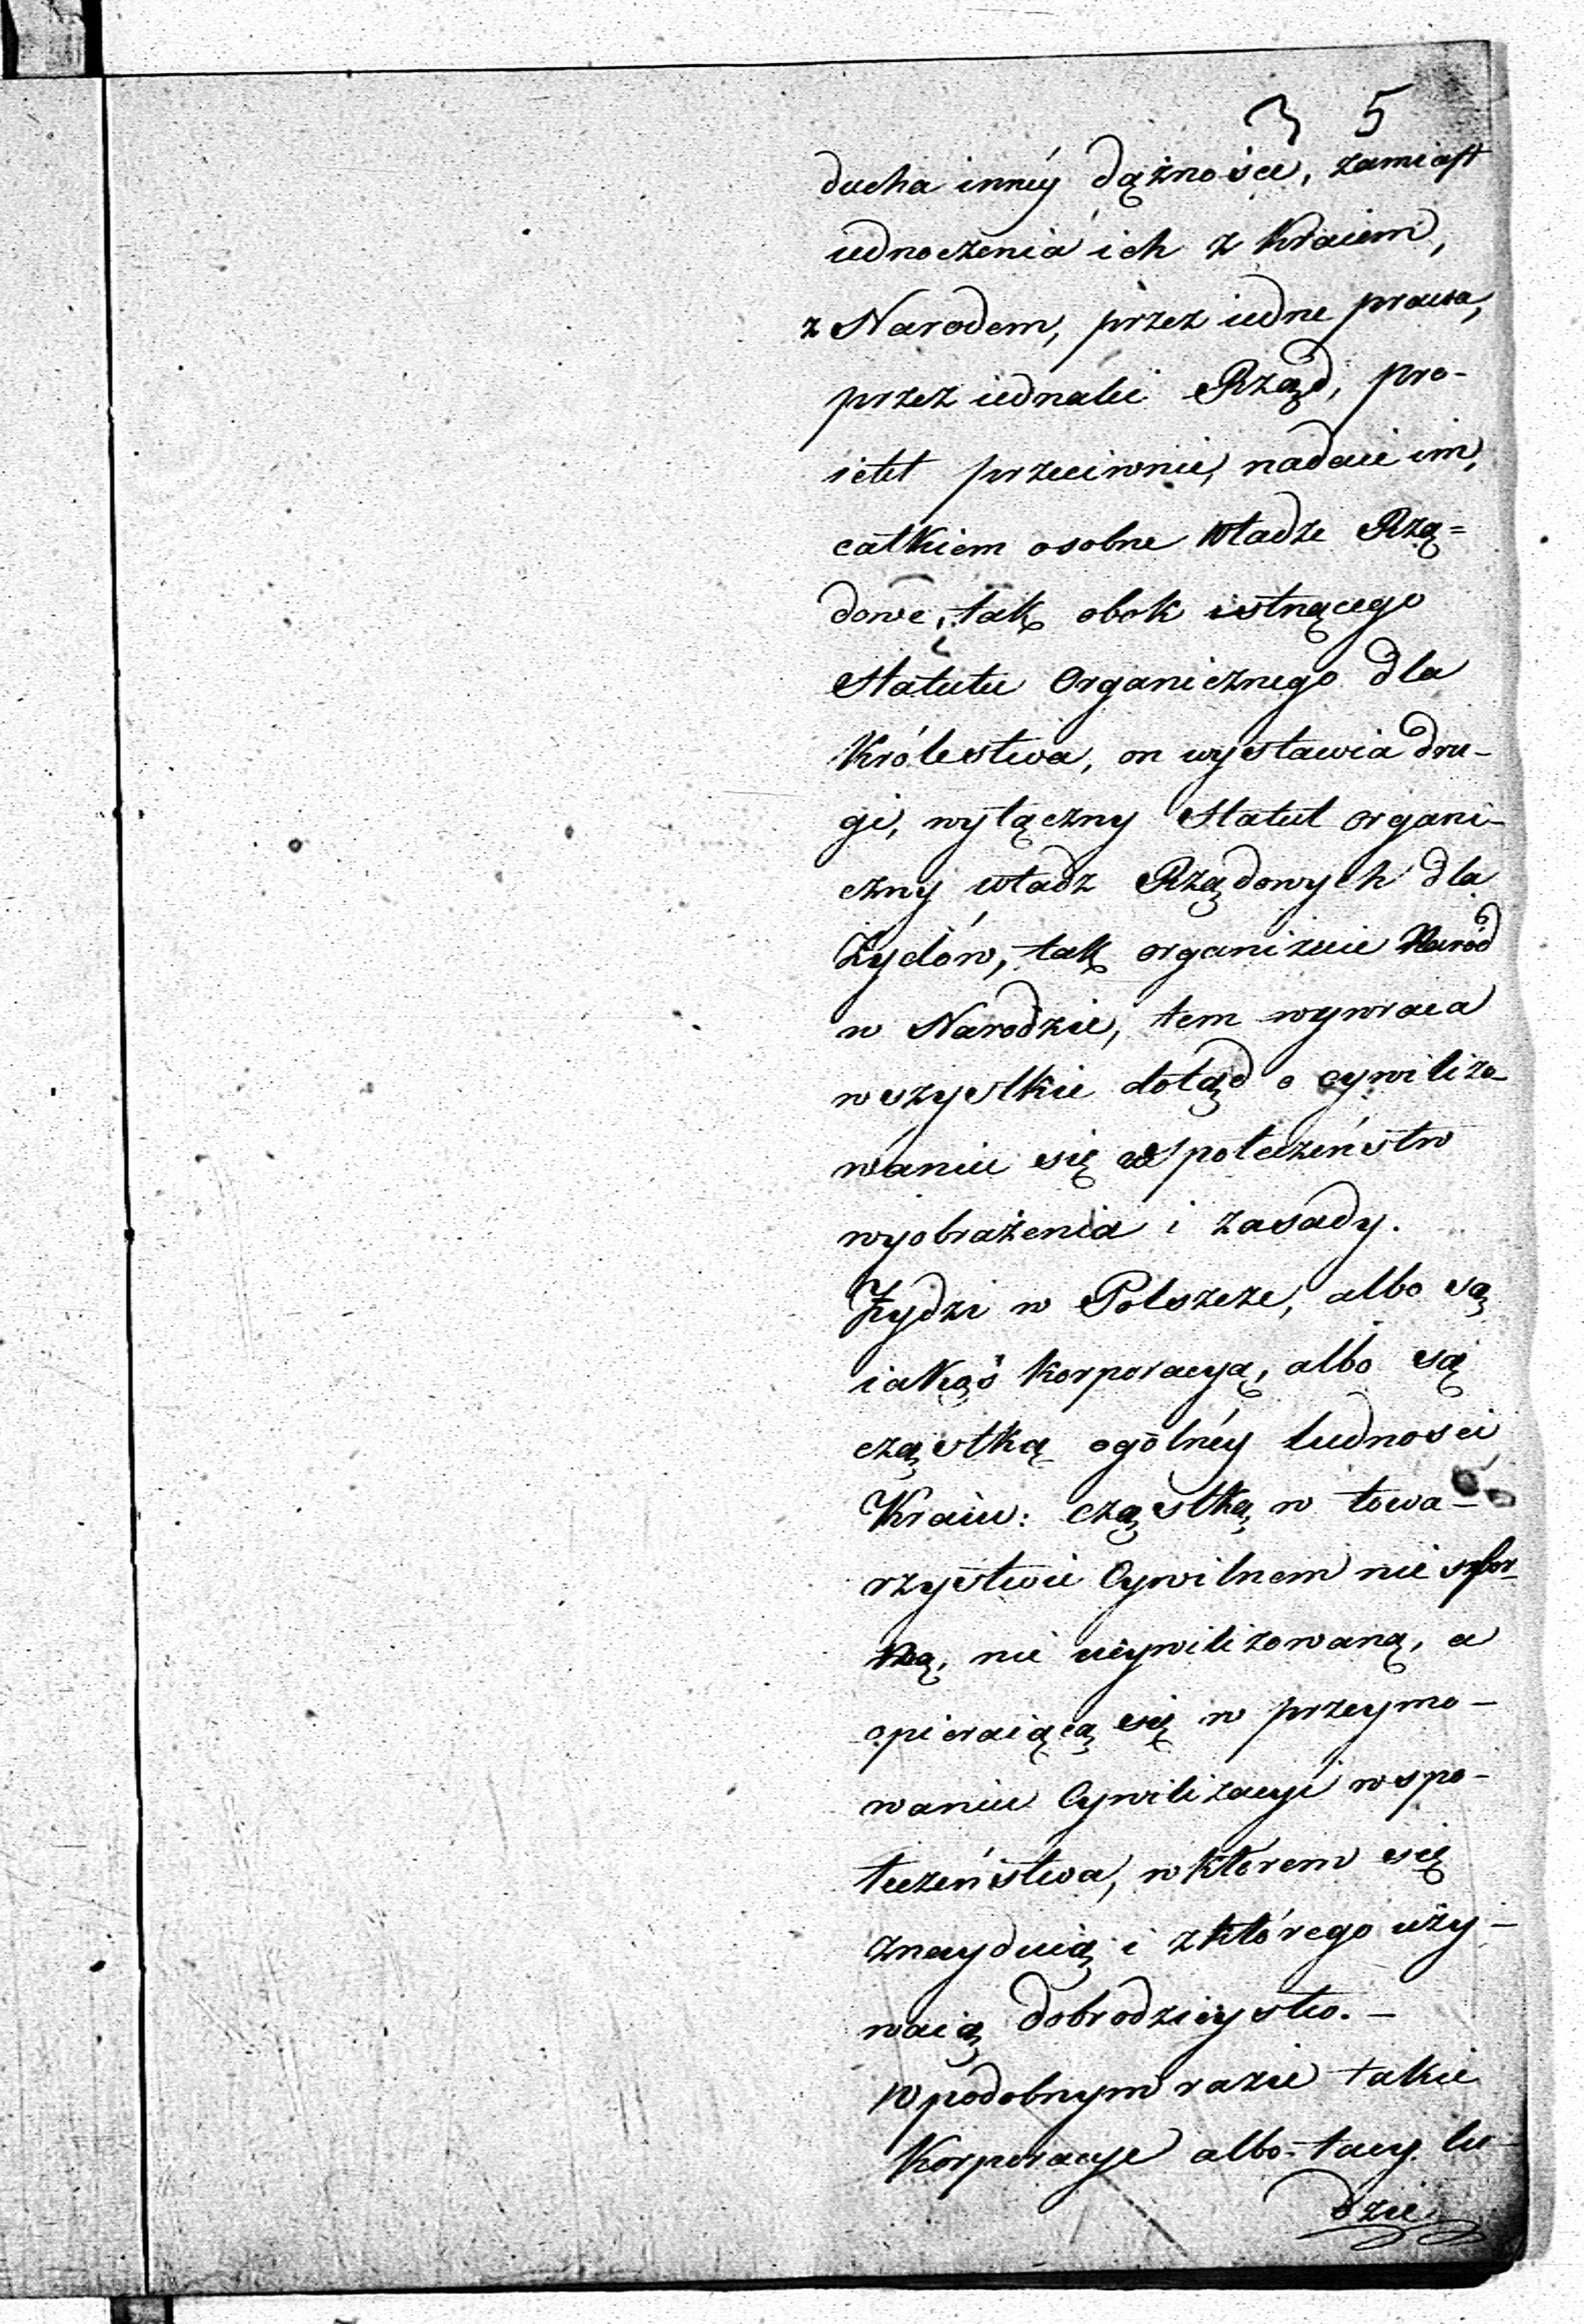 3 5
ducha innéy dążności, zamiast
iednoczenia ich z Kraiem,
z Narodem, przez iedne prawa,
przez iednaki Rząd, pro-
iekt przeciwnie, nadaie im,
całkiem osobne władze Rzą=
dowe, tak obok istnącego
Statutu Organicznego dla
Królestwa, on wystawia dru-
gi, wyłączny Statut organi-
czny władz Rządowych dla
Żydów, tak organizuie Naród
w Narodzie, tem wywraca
wszystkie dotąd o cywilizo-
waniu się społeczeństw
wyobrażenia i zasady.
Żydzi w Polszcze, albo są
iakąś korporacyą, albo są
cząstką ogólnéy ludności
Kraiu: cząstką w towa-
rzystwie Cywilnem nie sfor-
ną, nie ucywilizowaną, a
opieraiącą się w przeymo-
waniu Cywilizacyi wspo-
łeczeństwa, w którem się
znayduią i z którego uży-
waią dobrodzieystw. -
W podobnym razie takie
Korporacye albo tacy lu-
dzie